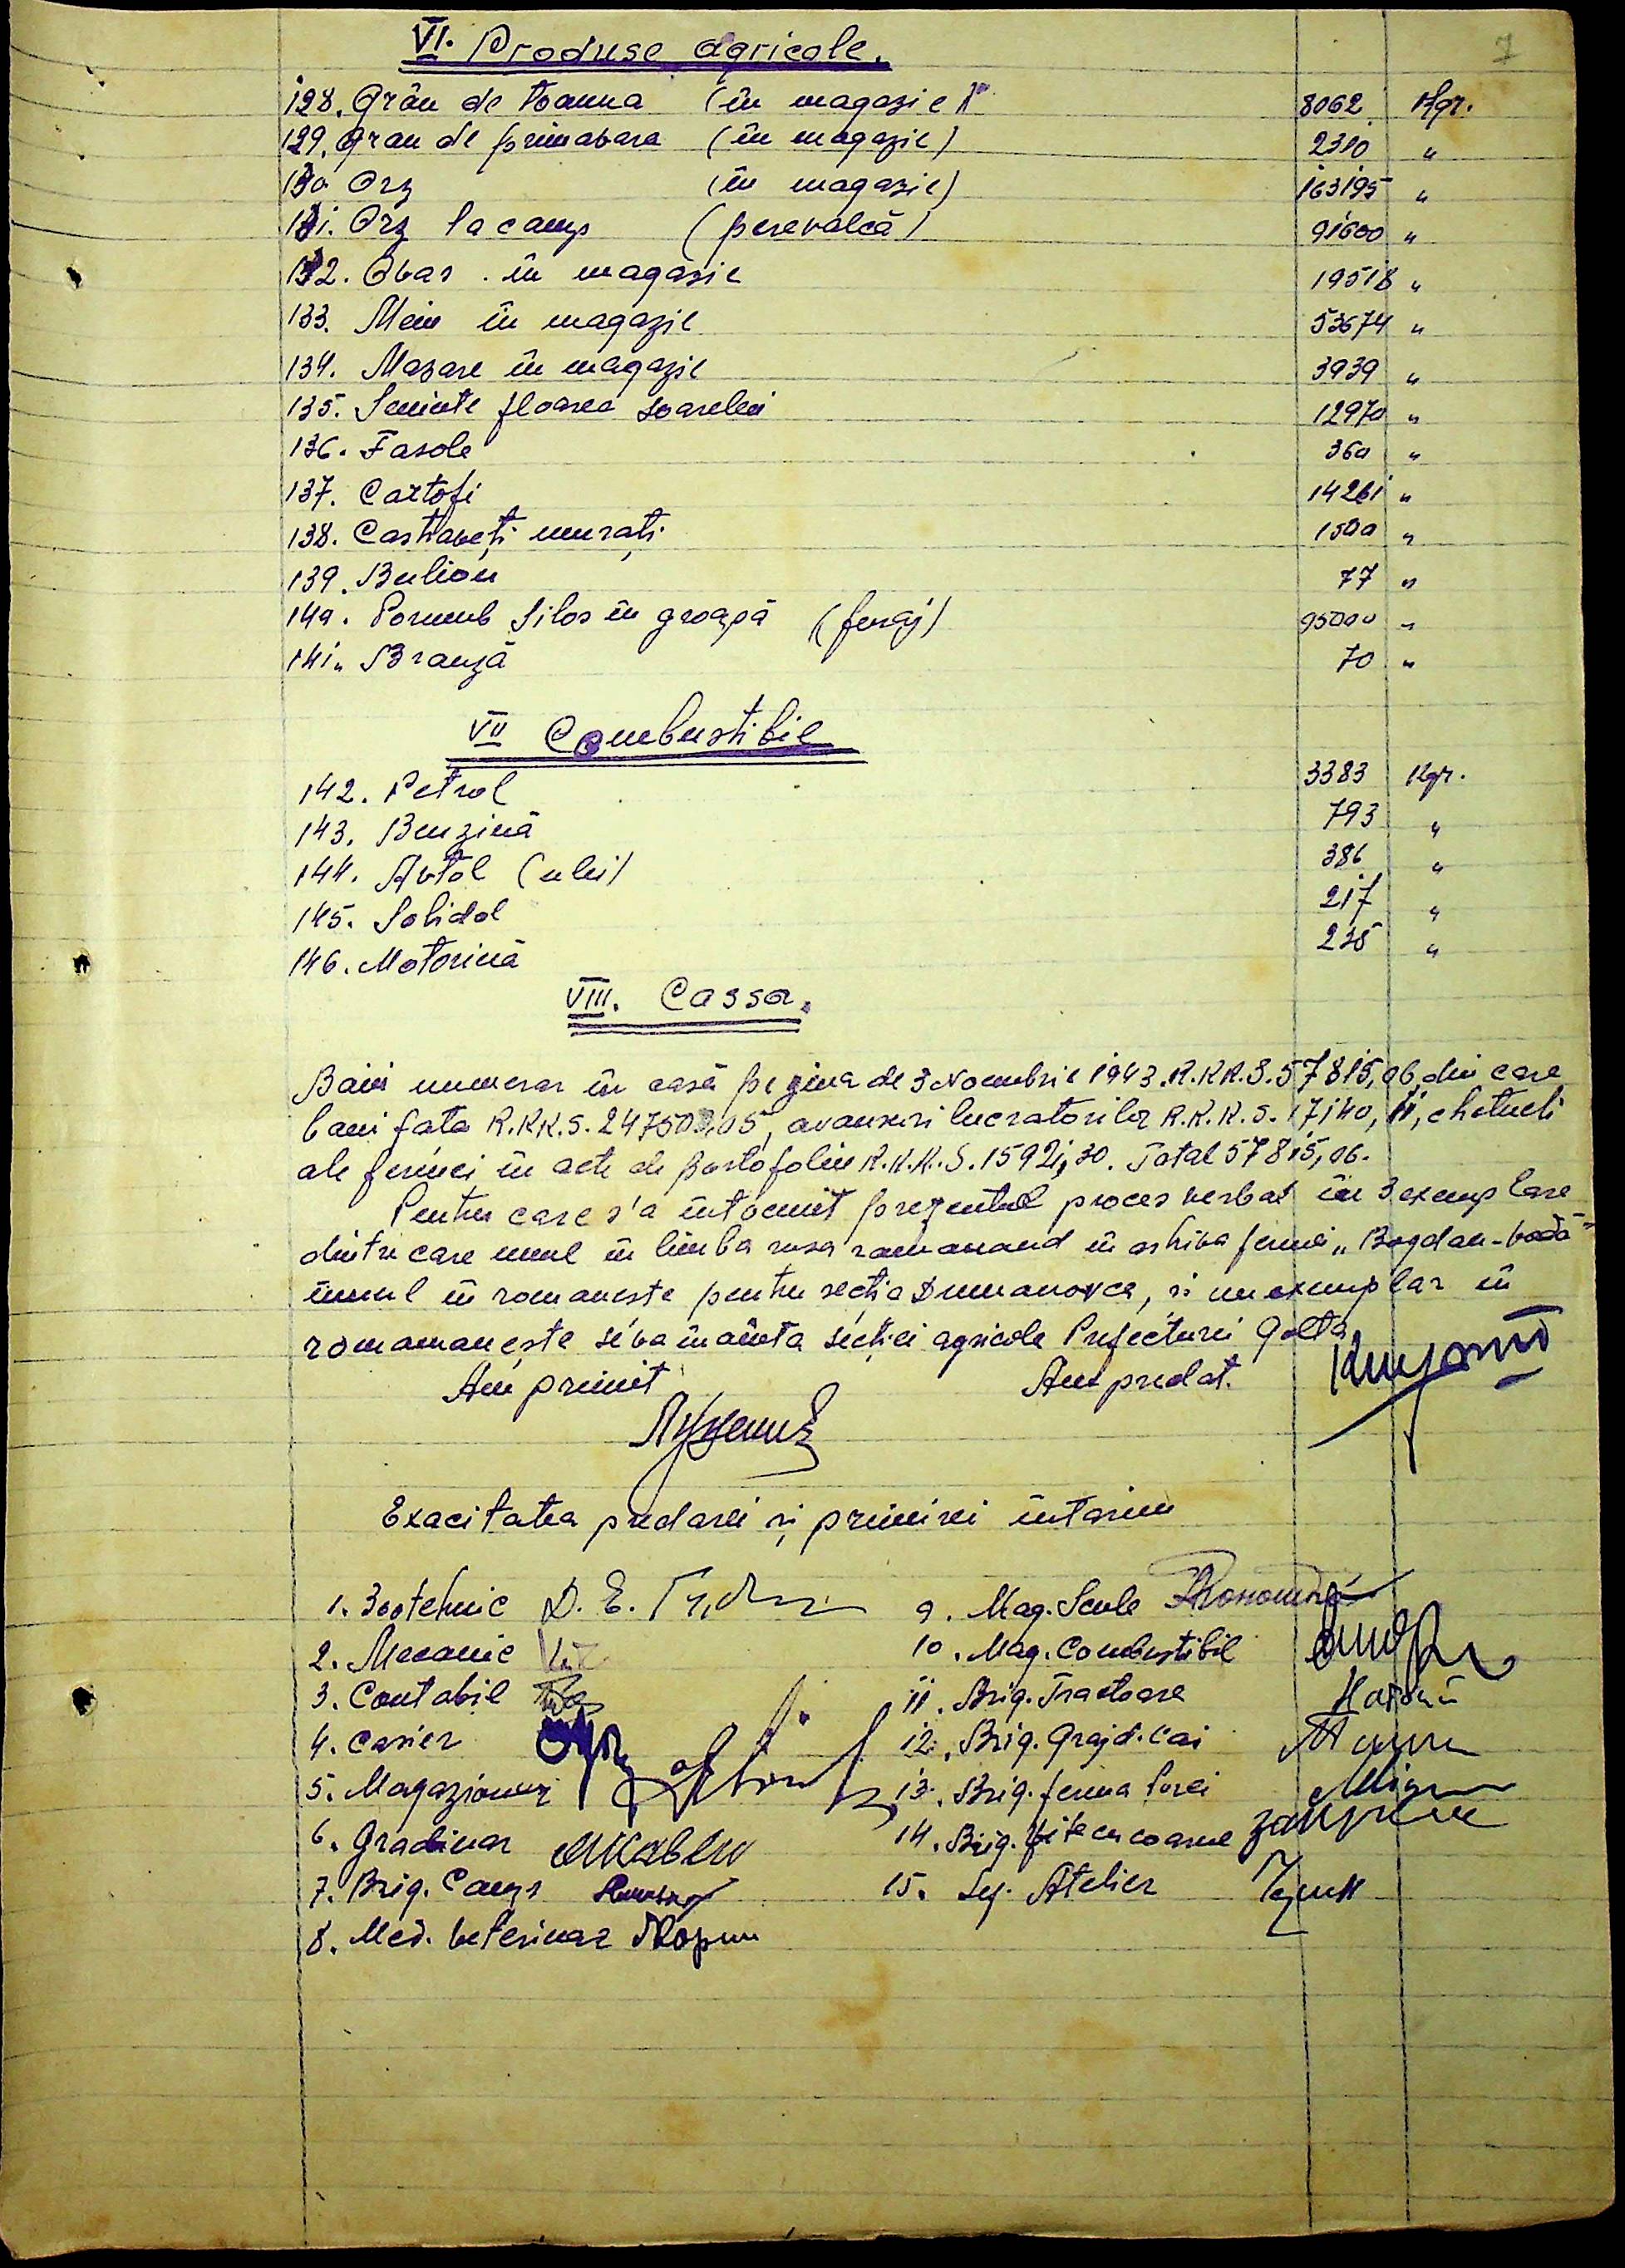 7
VI. Produse agricole.
128. Grâu de toamna (în magazie) 8062 Kgr.
129. Grau de primavara (în magazie) 2310 "
130 Orz (în magazie) 163195 "
131. Orz la camp (perevalcă) 91600 "
132. Ovas . în magazie 19518 "
133. Meiu în magazie 53674 "
134. Mazare în magazie 3939 "
135. Seminte floarea soarelui 12970 "
136. Fasole 360 "
137. Cartofi 14261 "
138. Castraveți murați 1500 "
139. Bulion 77 "
140. Porumb Siloz în groapă (furaj) 95000 "
141. Branză 70 "
VII Combustibil
142. Petrol 3383 Kgr.
143. Benzină 793 "
144. Avtol (ulei) 386 "
145. Solidol 217 "
146. Motorină 235 "
VIII. Cassa.
Bani numerar în casă pe ziua de 3 Noembrie 1943. R.K.K.S. 57815,06, din care
bani fata R.K.K.S. 24750,05, avansuri lucratorilor R.K.K.S. 17140,11, chetueli
ale fermei în acte de portofoliu R.K.K.S. 15921,30. Total 57815,06.
Pentru care s'a întocmit prezentul proces verbal în 3 exemplare
dintre care unul în limba rusa ramanand în arhiva fermei „Bogdan-vodă"
unul în romaneste pentru secția Dumanovca, si un exemplar în
romamanește se va înainta secției agricole Prefecturei Golta
Am primit Am predat.
Exacitatea predarei și primirei întarim
1. Zootehnic D. E. 9. Mag. Scule
2. Mecanic 10. Mag. Combustibil
3. Contabil 11. Brig. Tractoare
4. Casier 12. Brig. Grajd. Cai
5. Magazioner 13. Brig. ferma Porci
6. Gradinar 14. Brig. Vite cu coarne
7. Brig. Camp 15. Sef. Atelier
8. Med. Veterinar